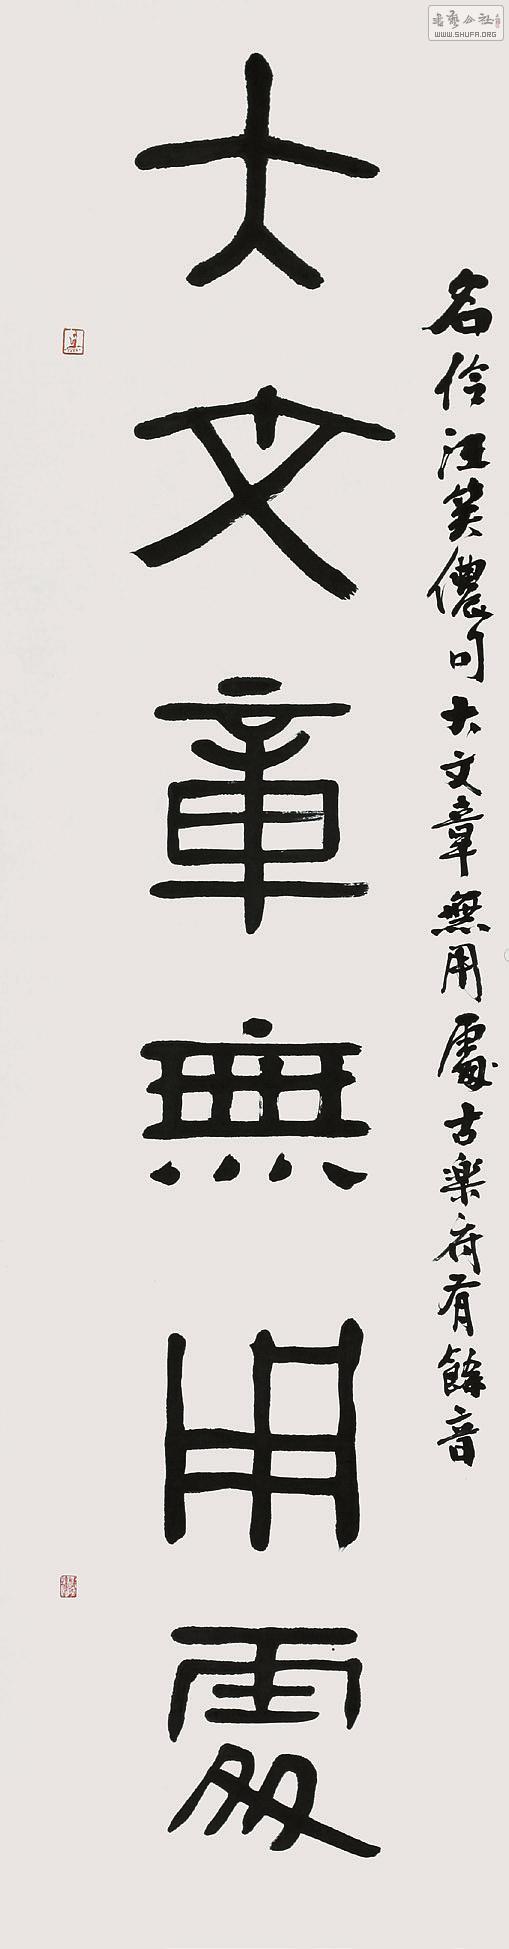 名伶汪笑儂句大文章無用處古樂府有餘音
大文章無用處
書藝公社
WWW.SHUFA.ORG